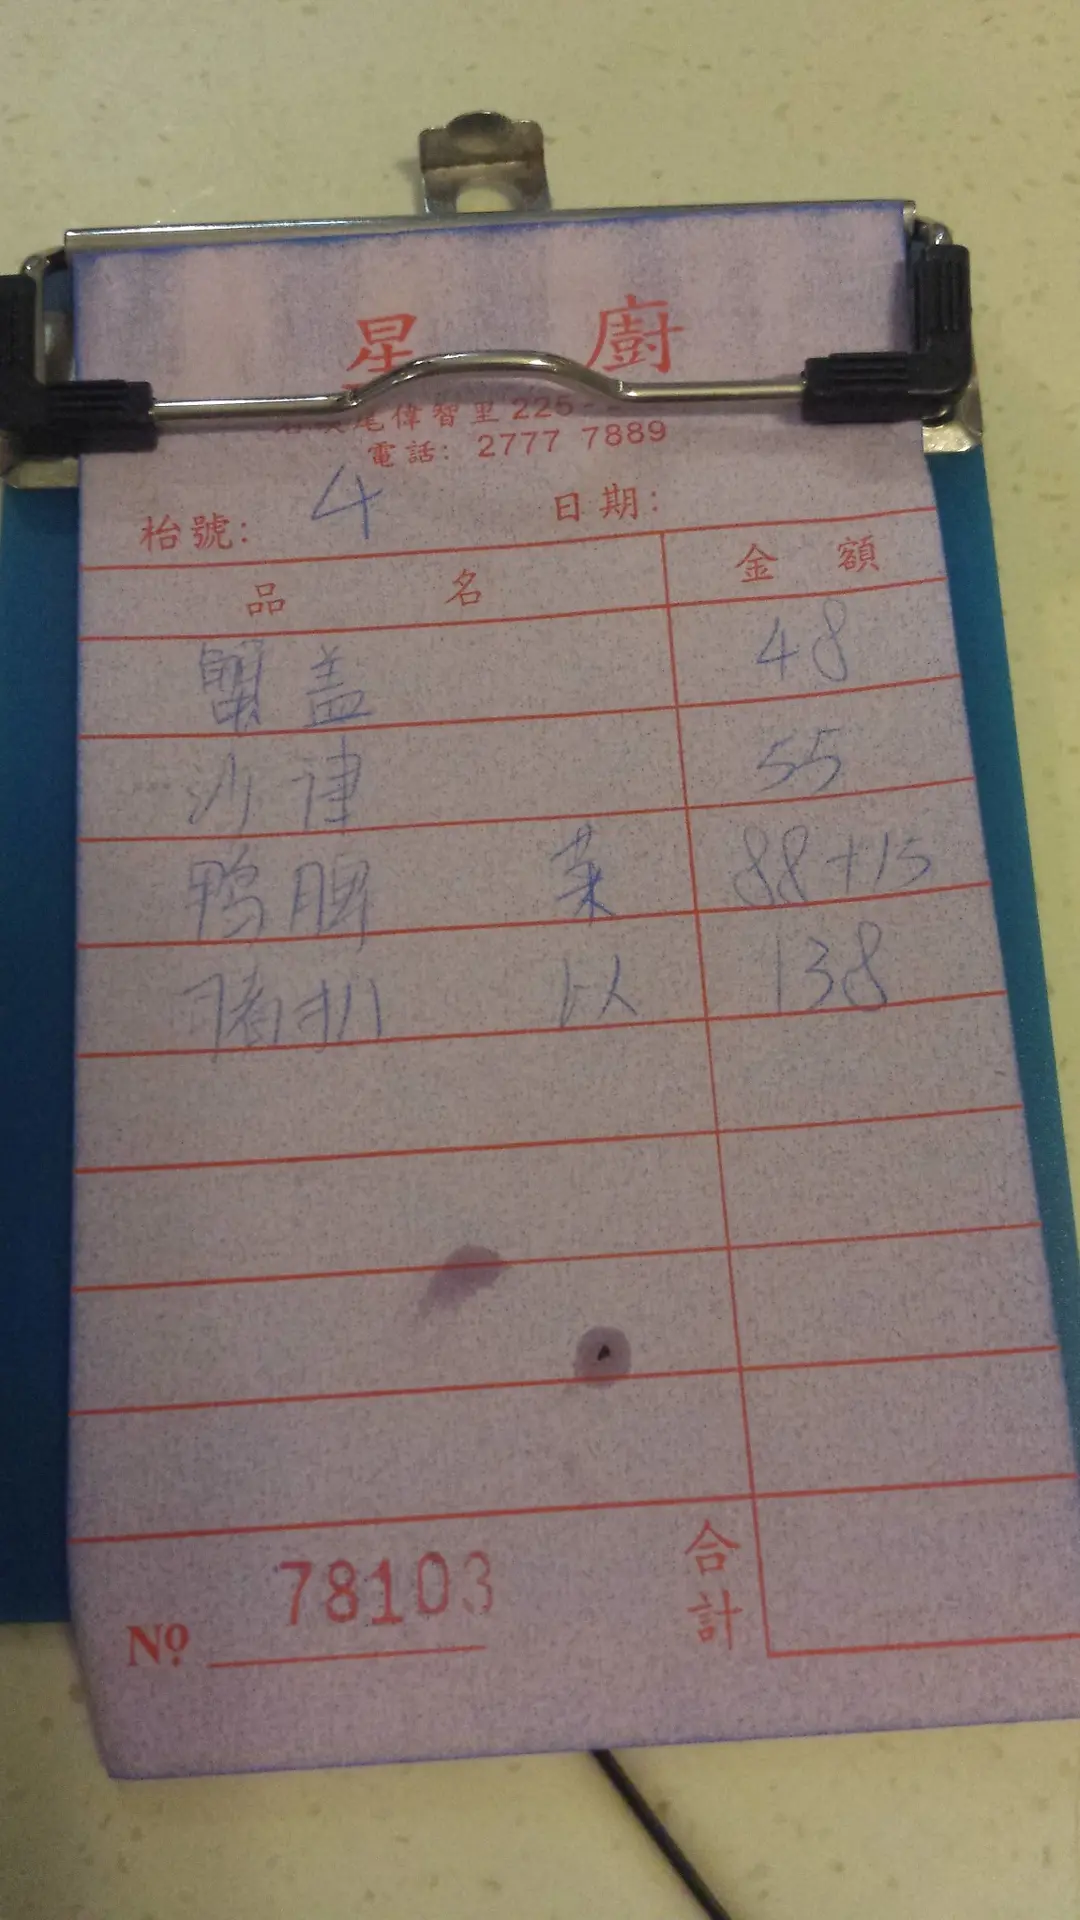 星 廚
尾偉智里 225
電話: 2777 7889
枱號: 4 日期:
品 名 金 額
蟹盖 48
沙律 55
鴨脾 菜 88+15
猪扒 138
合計
Nº 78103